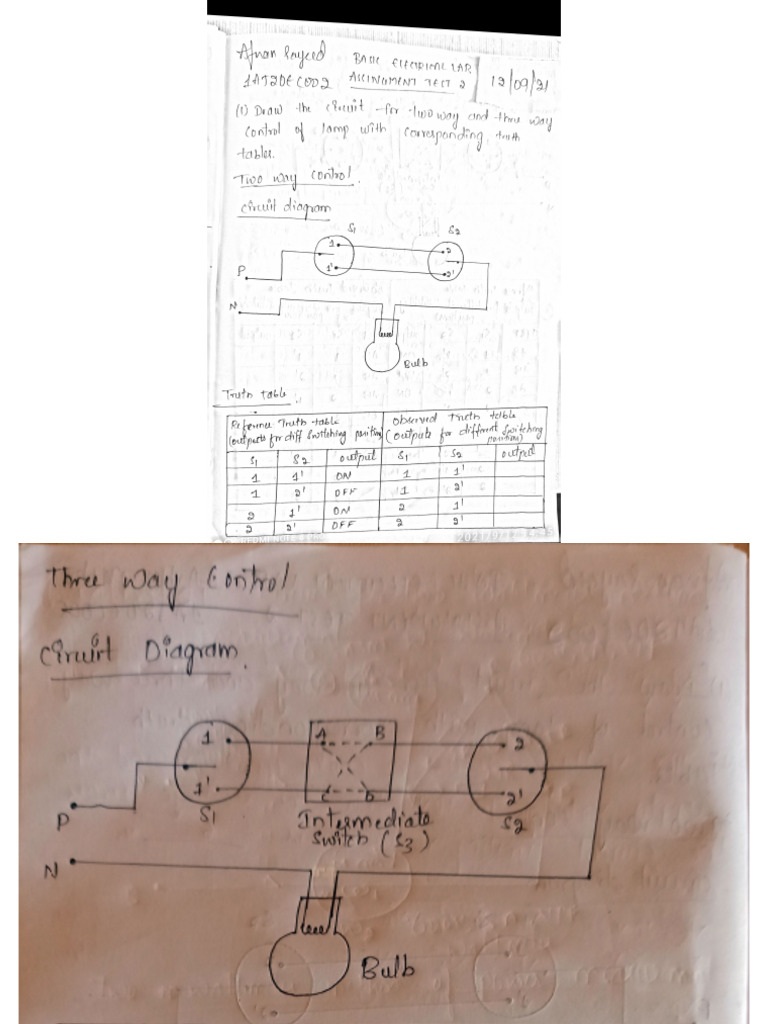 Afnan Sayeed BASIC ELECTRICAL LAB
ASSINGMENT TEST 2 12/09/21
(1) Draw the circuit for two way and three way
control of lamp with corresponding truth
tables.
Two way control.
circuit diagram
S1 S2
1 2
1' 2'
P
N
Bulb
Truth table :
Reference Truth table observed Truth table
(outputs for diff switching position) (outputs for different switching
position)
S1 S2 output S1 S2 output
1 1' ON 1 1'
1 2' OFF 1 2'
2 1' ON 2 1'
2 2' OFF 2 2'
Three way control
circuit Diagram.
1 A B 2
1' C D 2'
P S1 Intermediate S2
switch (S3)
N
Bulb